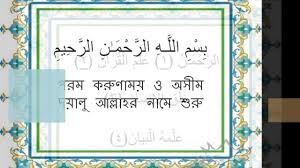 بِسْمِ اللَّـهِ الرَّحْمَـٰنِ الرَّحِيمِ
الرَّحْمَـٰنُ ﴿١﴾ عَلَّمَ الْقُرْآنَ ﴿٢﴾
রম করুণাময় ও অসীম
য়ালু আল্লাহর নামে শুরু
عَلَّمَهُ الْبَيَانَ ﴿٤﴾